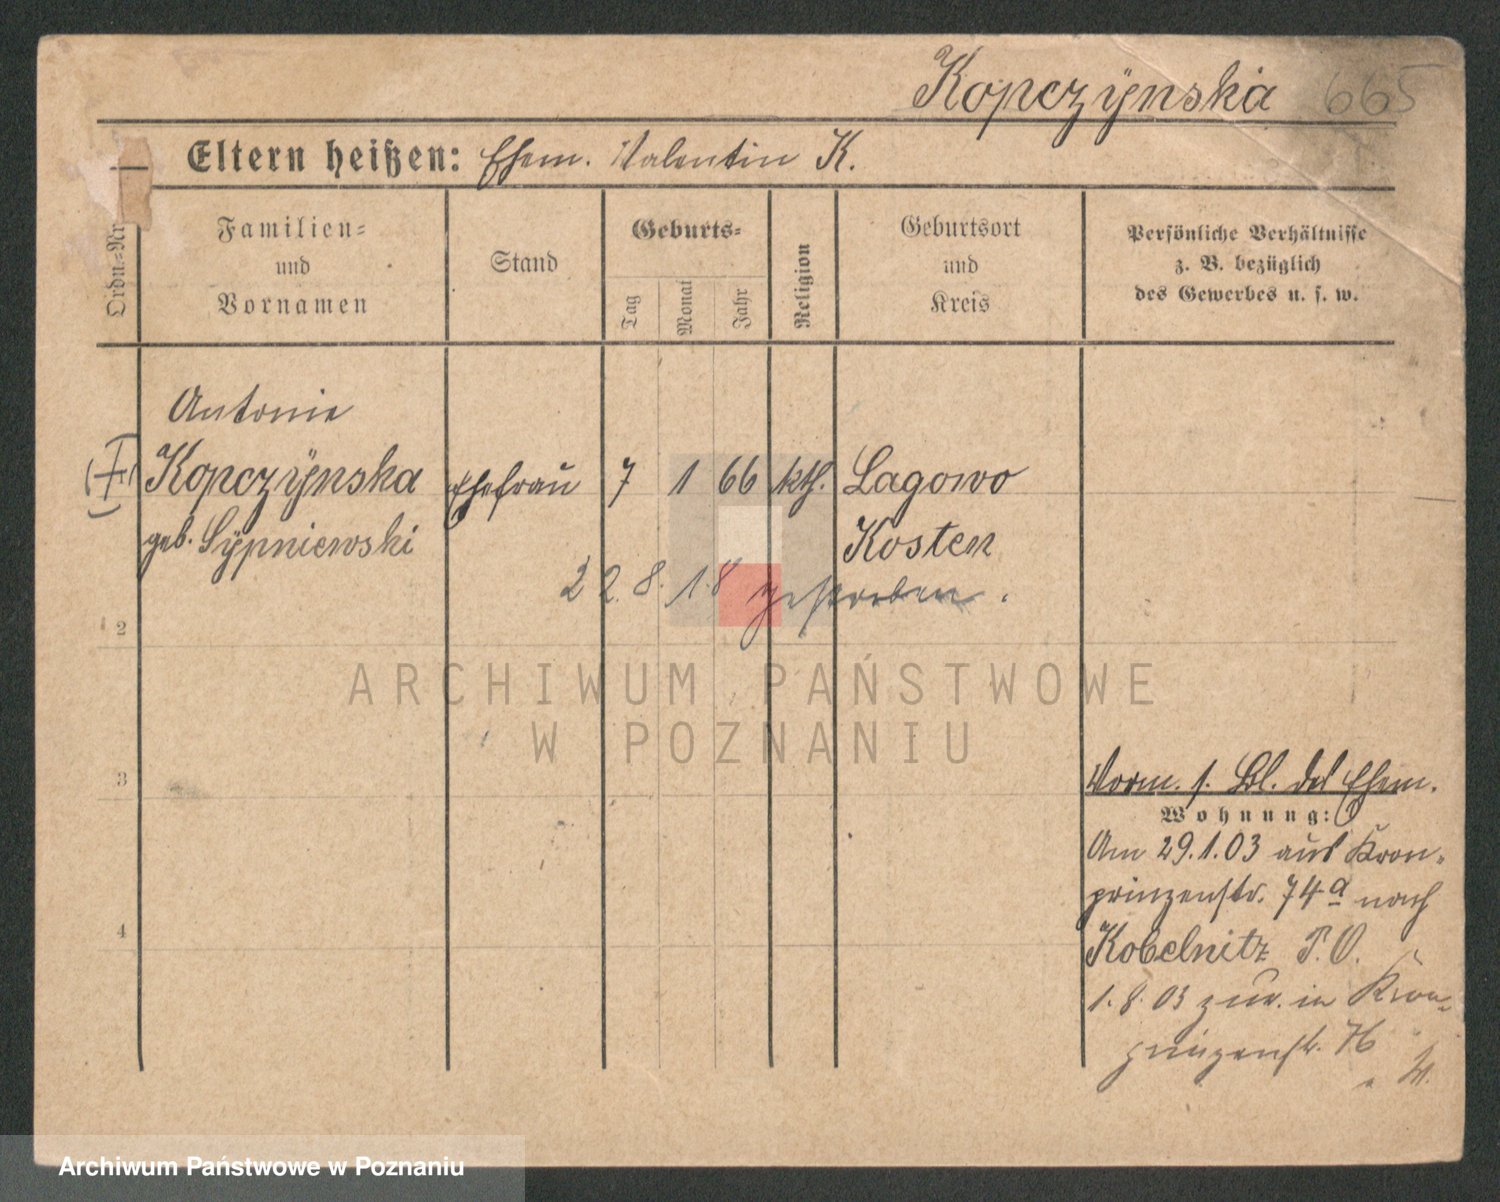 Kopczynska 665
Eltern heißen: Ehem. Valentin K.
Ordn.-Nr.
Familien- und Vornamen
Stand
Geburts-
Tag
Monat
Jahr
Religion
Geburtsort und Kreis
Persönliche Verhältnisse
z. B. bezüglich
des Gewerbes u. s. w.
Antonie
Kopczynska Ehefrau 7 1 66 kth. Lagowo
geb. Sypniewski Kosten
22.8.18 gestorben.
2
ARCHIWUM PAŃSTWOWE
W POZNANIU
3
Vorm. s. Bl. des Ehem.
Wohnung:
Am 29.1.03 aus Kron-
prinzenstr. 74a nach
Kobelnitz P.O.
4
1.8.03 zur. in Kron-
prinzenstr. 76
Archiwum Państwowe w Poznaniu